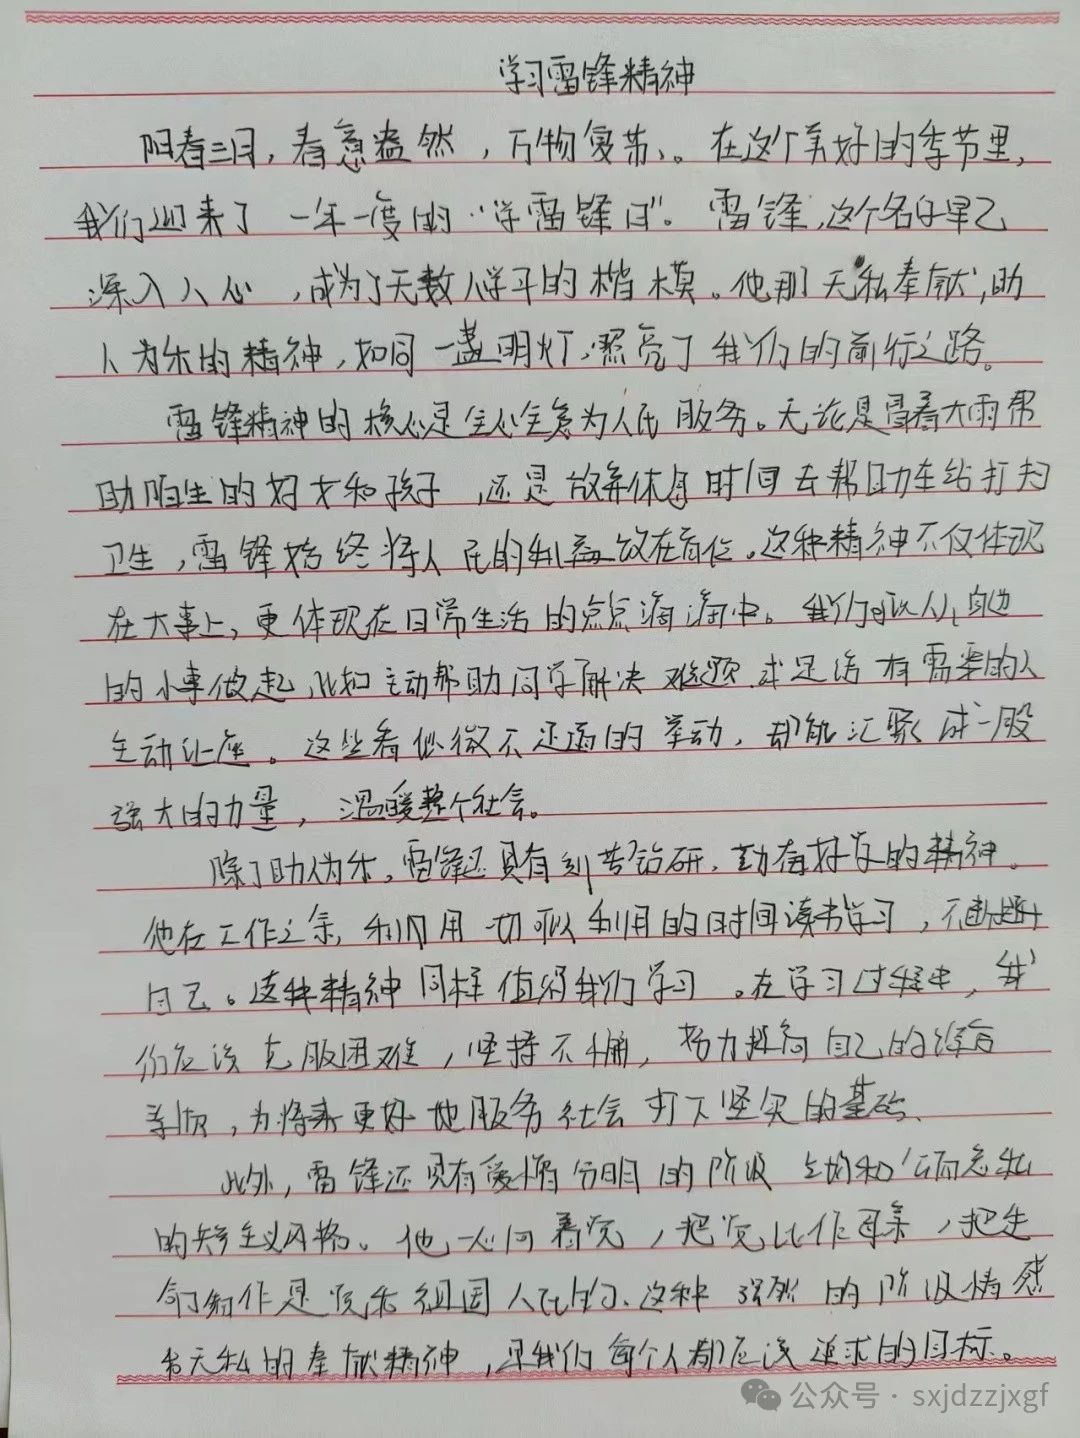 学习雷锋精神
阳春三月，春意盎然，万物复苏、。在这个美好的季节里，
我们迎来了一年一度的“学雷锋日”。雷锋，这个名字早已
深入人心，成为了无数人学习的楷模。他那无私奉献，助
人为乐的精神，如同一盏明灯，照亮了我们的前行之路。
雷锋精神的核心是全心全意为人民服务。无论是冒着大雨帮
助陌生的妇女和孩子，还是放弃休息时间去帮助车站打扫
卫生，雷锋始终将人民的利益放在首位。这种精神不仅体现
在大事上，更体现在日常生活的点点滴滴中。我们可以从身边
的小事做起，比如主动帮助同学解决难题，或是给有需要的人
主动让座。这些看似微不足道的举动，却能汇聚成一股
强大的力量，温暖整个社会。
除了助人为乐，雷锋还具有刻苦钻研，勤奋好学的精神。
他在工作之余，利用用一切可以利用的时间读书学习，不断提升
自己。这种精神同样值得我们学习。在学习过程中，我
们应该克服困难，坚持不懈，努力提高自己的综合
素质，为将来更好地服务社会打下坚实的基础、
此外，雷锋还具有爱憎分明的阶级立场和公而忘私
的共产主义风格。他一心向着党，把党比作母亲，把生
命的是党和祖国人民的、这种强烈的阶级情感
和无私的奉献精神，是我们每个人都应该追求的目标。
公众号·sxjdzzjxgf